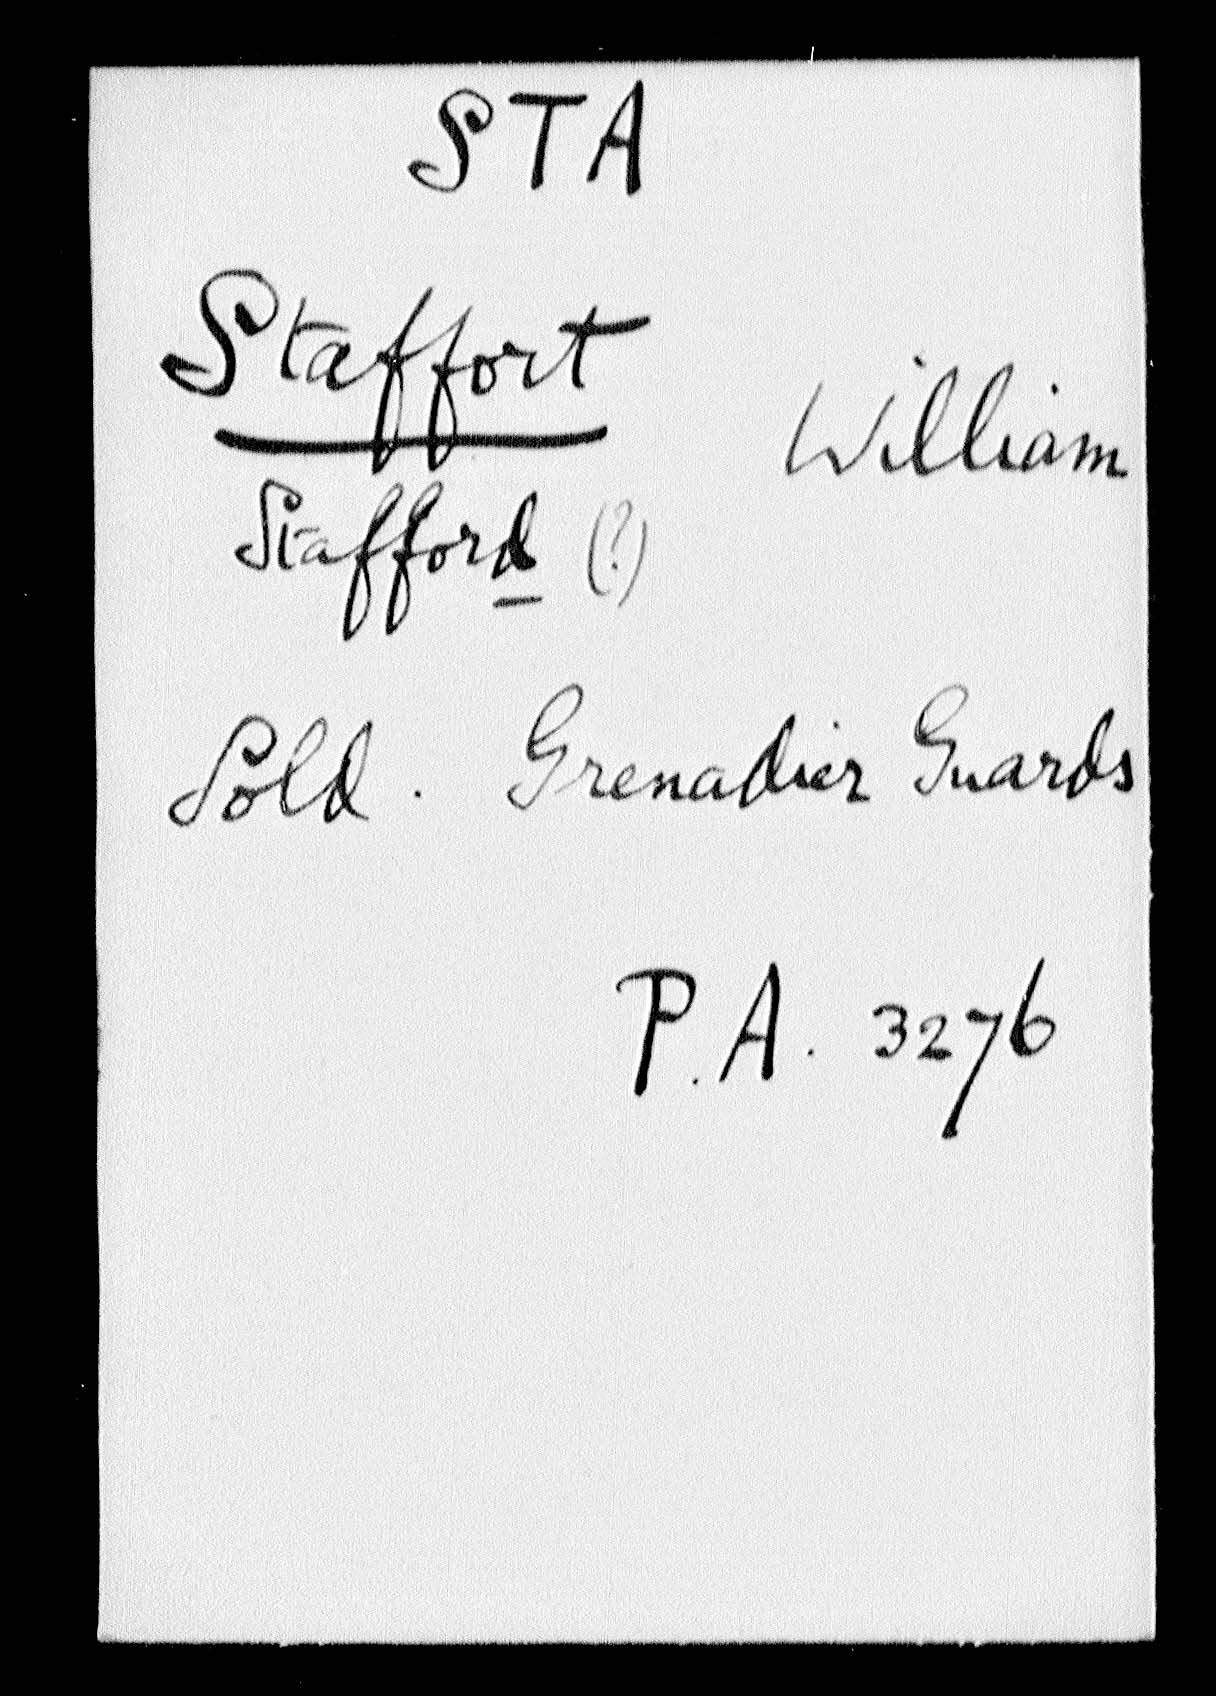 STA
Staffort William
Stafford (?)
Sold. Grenadier Guards
P.A. 3276